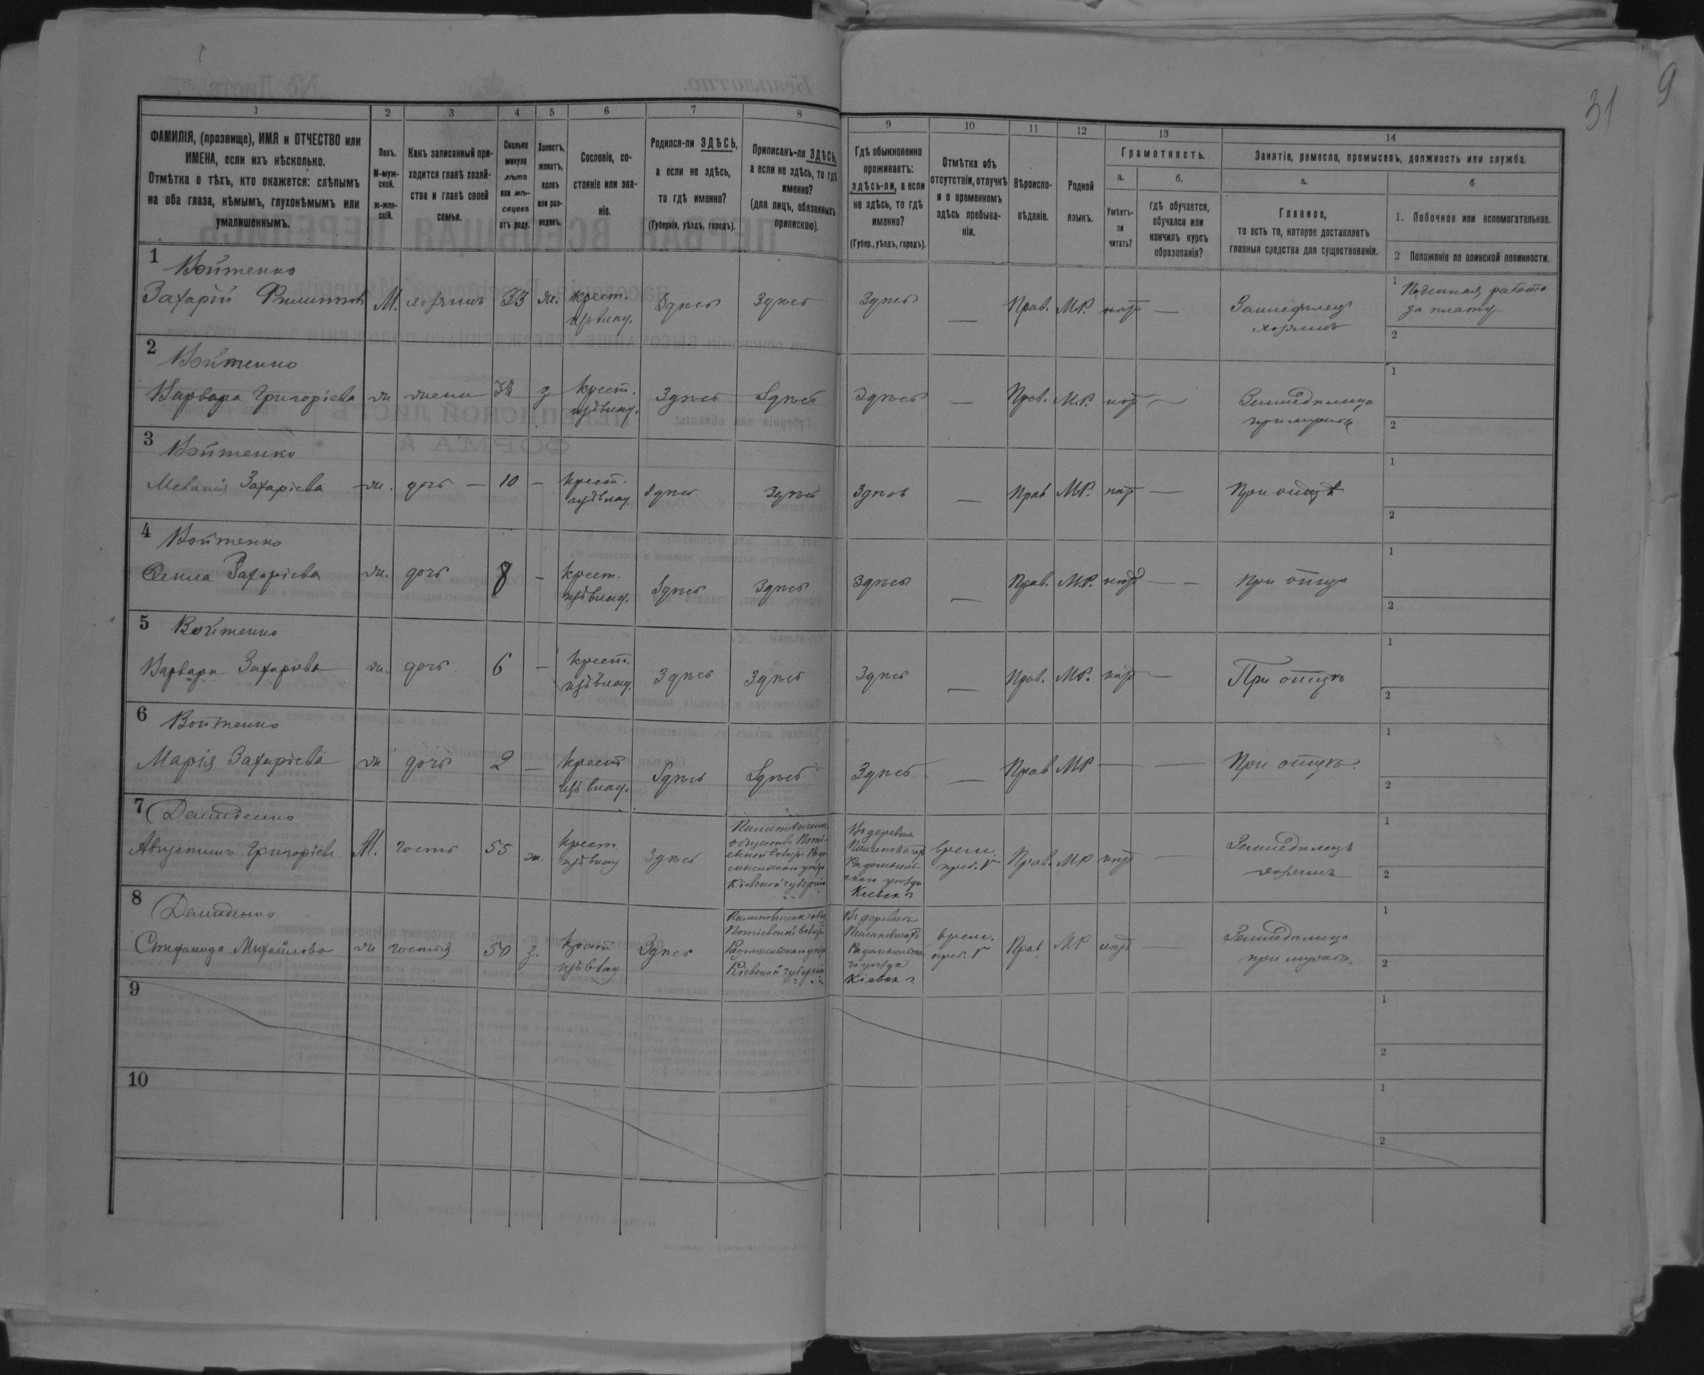 31 9
1 2 3 4 5 6 7 8 9 10 11 12 13 14
ФАМИЛІЯ, (прозвище), ИМЯ и ОТЧЕСТВО или
ИМЕНА, если ихъ нѣсколько.
Отмѣтка о тѣхъ, кто окажется: слѣпымъ
на оба глаза, нѣмымъ, глухонѣмымъ или
умалишеннымъ.
Полъ.
М-муж-
ской.
Ж-жен-
скій.
Какъ записанный при-
ходится главѣ хозяй-
ства и главѣ своей
семьи.
Сколько
минуло
лѣтъ
или мѣ-
сяцевъ
отъ роду.
Холостъ,
женатъ,
вдовъ
или раз-
веденъ.
Сословіе, со-
стояніе или зва-
ніе.
Родился-ли ЗДѢСЬ,
а если не здѣсь,
то гдѣ именно?
(Губернія, уѣздъ, городъ).
Приписанъ-ли ЗДѢСЬ,
а если не здѣсь, то гдѣ
именно?
(для лицъ, обязанныхъ
припискою).
Гдѣ обыкновенно
проживаетъ:
ЗДѢСЬ-ЛИ, а если
не здѣсь, то гдѣ
именно?
(Губер., уѣздъ, городъ).
Отмѣтка объ
отсутствіи, отлучкѣ
и о временномъ
здѣсь пребыва-
ніи.
Вѣроиспо-
вѣданіе.
Родной
языкъ.
Грамотность.
а.
Умѣетъ-
ли
читать?
б.
гдѣ обучается,
обучался или
кончилъ курсъ
образованія?
Занятіе, ремесло, промыселъ, должность или служба.
а.
Главное,
то есть то, которое доставляетъ
главныя средства для существованія.
б
1. Побочное или вспомогательное.
2 Положеніе по воинской повинности.
1 Войтенко
Захарій Филиппов М. хозяинъ 33 ж. крест. изъ влад. Здѣсь Здѣсь Здѣсь — Прав. МР. нѣтъ — Земледѣлец хозяинъ
1 Поденная работа за плату
2
2 Войтенко
Варвара Григоріева ж жена з крест. изъ влад. Здѣсь Здѣсь Здѣсь — Прав. М.Р. нѣтъ — Земледѣлица при мужѣ
1
2
3 Войтенко
Меланія Захаріева ж. дочь — 10 — крест. изъ влад. Здѣсь Здѣсь Здѣсь — Прав МР. нѣтъ — При отцѣ
1
2
4 Войтенко
Захаріева ж. дочь 8 — крест. изъ влад. Здѣсь Здѣсь Здѣсь — Прав. МР. нѣтъ — — При отцѣ
1
2
5 Войтенко
Варвара Захаріева ж. дочь 6 — крест. изъ влад. Здѣсь Здѣсь Здѣсь — Прав. МР. нѣтъ — При отцѣ
1
2
6 Войтенко
Марія Захаріева ж дочь 2 — крест изъ влад. Здѣсь Здѣсь Здѣсь — Прав МР — — При отцѣ.
1
2
7 Демиденко
Августинъ Григоріевъ М. гость 55 ж. крест изъ влад Здѣсь
общества
Кіевской губерніи
Въ деревне
уѣзда
Кіевск г
врем. преб. Прав. МР нѣтъ — Земледѣлецъ хозяинъ
1
2
8 Демиденко
Стефанида Михайлова ж гостья 50 з. крест изъ влад Здѣсь
Кіевской губерніи
Въ деревне
уѣзда
Кіевск г.
врем. преб. Прав МР нѣтъ — Земледѣлица при мужѣ.
1
2
9
1
2
10
1
2